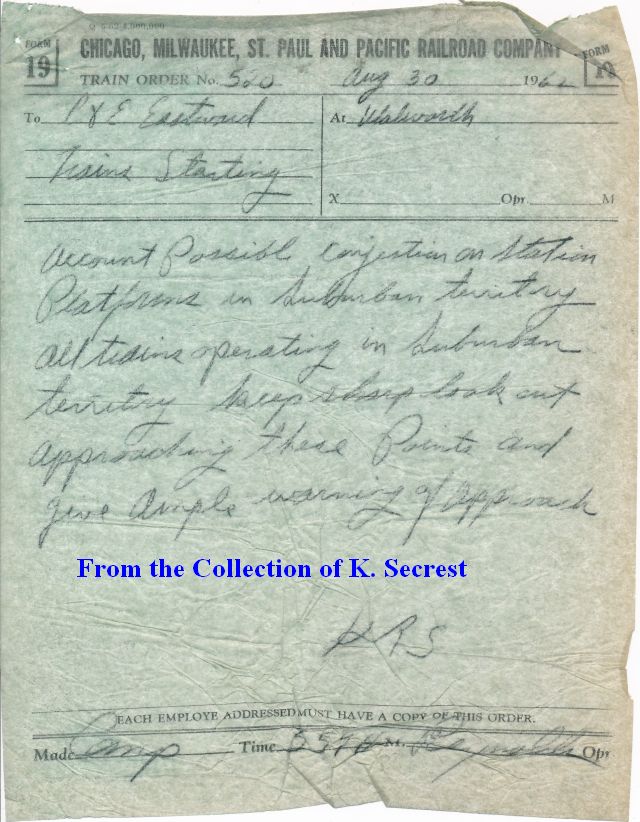 FORM
19
CHICAGO, MILWAUKEE, ST. PAUL AND PACIFIC RAILROAD COMPANY
FORM
19
TRAIN ORDER No. 520 Aug 30 1962
To C & E Eastward
At Walworth
Trains Starting
X Opr. M
Account Possible Conjestion on Station
Platforms in Suburban territory
All trains operating in Suburban
territry keep sharp look out
Approaching these Points and
give Ample warning of Approach
From the Collection of K. Secrest
EACH EMPLOYE ADDRESSED MUST HAVE A COPY OF THIS ORDER.
Made Comp Time 557 P M. Reynolds Opr.